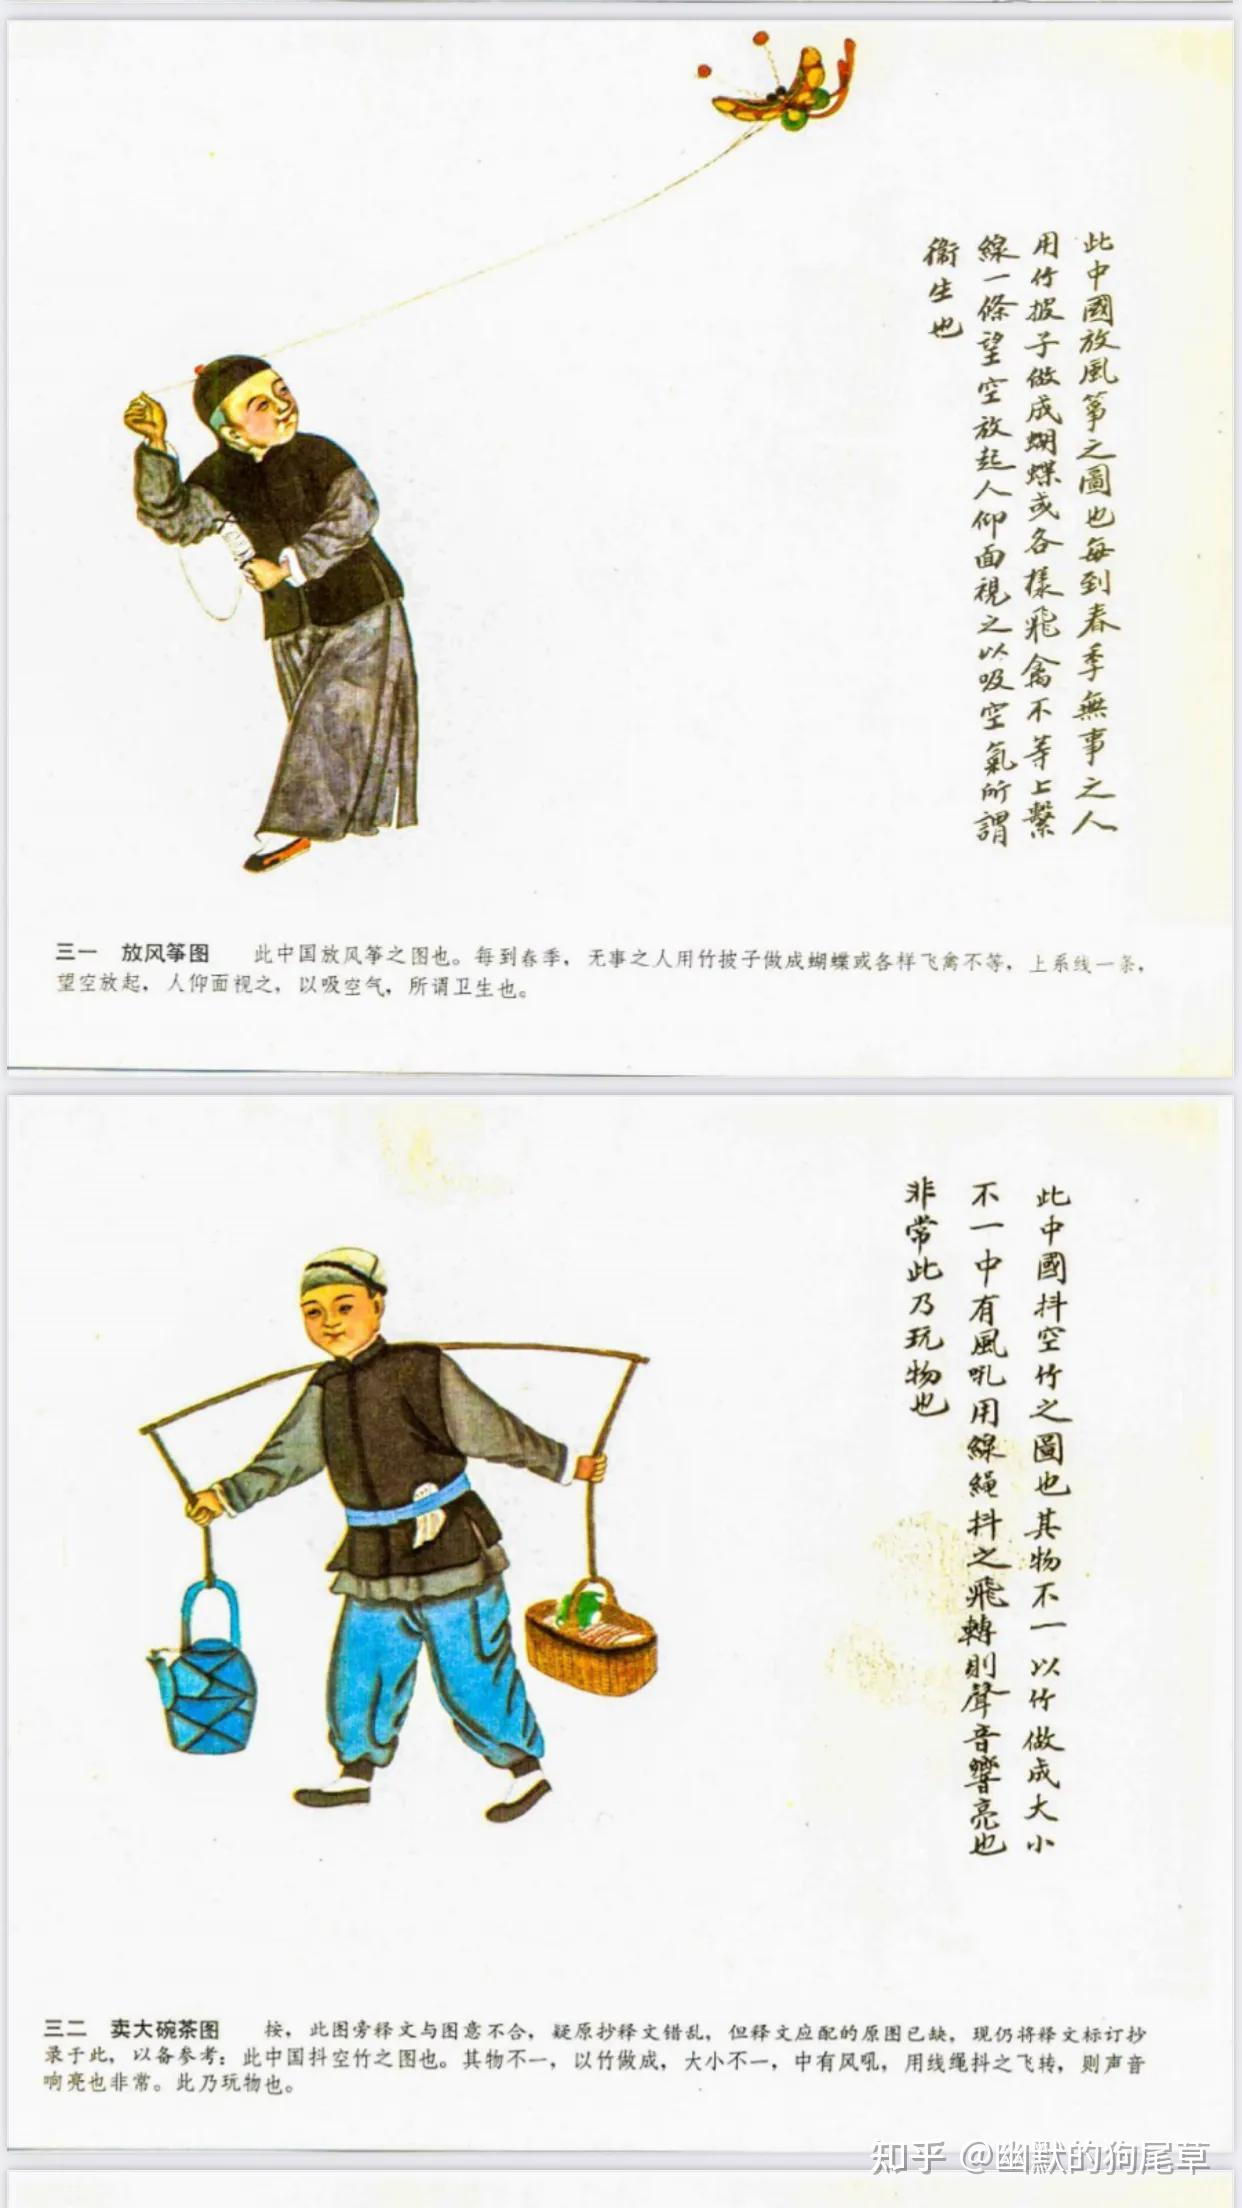 此中國放風箏之圖也每到春季無事之人
用竹披子做成蝴蝶或各樣飛禽不等上繫
線一條望空放起人仰面視之以吸空氣所謂
衛生也
三一 放风筝图 此中国放风筝之图也。每到春季，无事之人用竹披子做成蝴蝶或各样飞禽不等，上系线一条，
望空放起，人仰面视之，以吸空气，所谓卫生也。
此中國抖空竹之圖也其物不一以竹做成大小
不一中有風吼用線繩抖之飛轉則聲音響亮也
非常此乃玩物也
三二 卖大碗茶图 按，此图旁释文与图意不合，疑原抄释文错乱，但释文应配的原图已缺，现仍将释文标订抄
录于此，以备参考：此中国抖空竹之图也。其物不一，以竹做成，大小不一，中有风吼，用线绳抖之飞转，则声音
响亮也非常。此乃玩物也。
知乎 @幽默的狗尾草